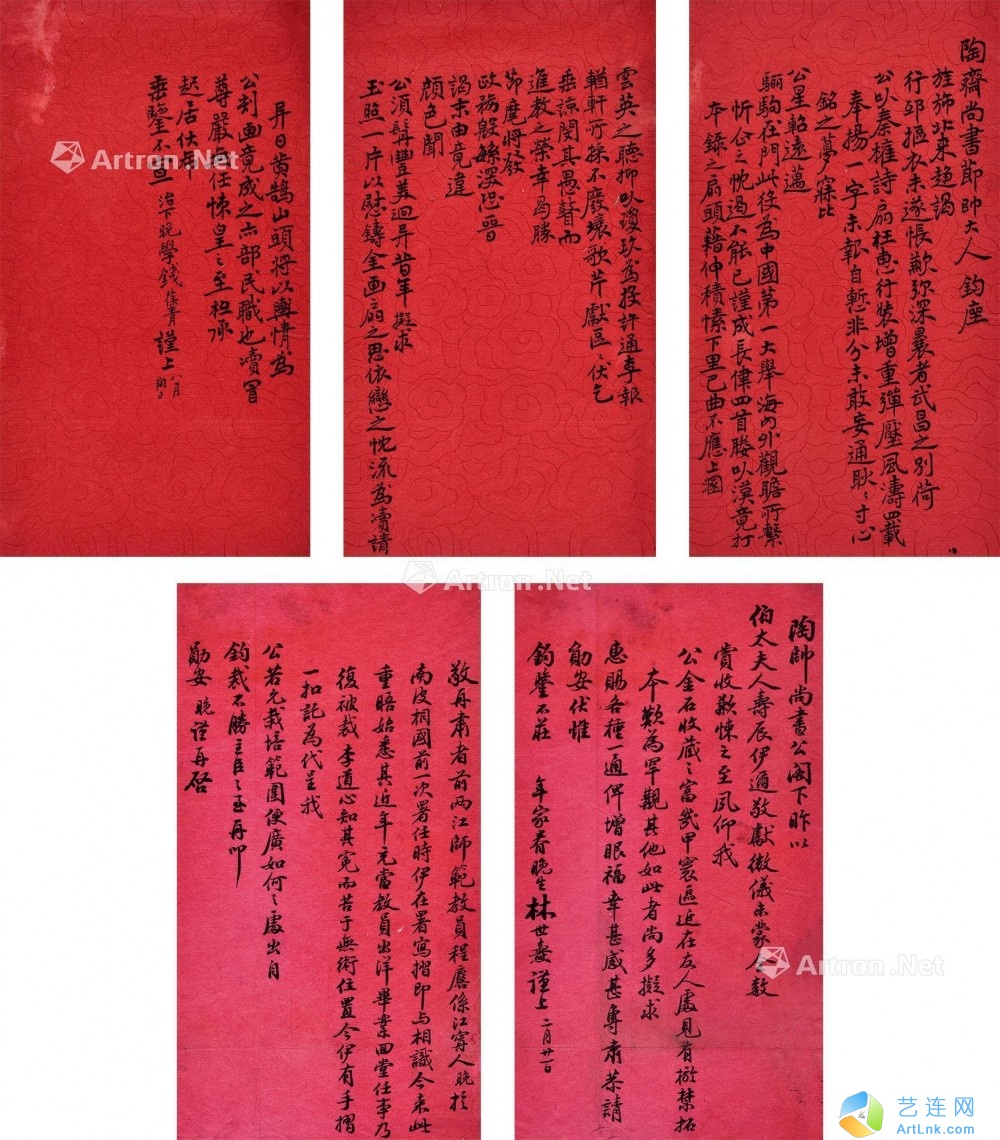 陶齋尚書節帥大人鈞座
旌斾北來趨謁
行邸摳衣未遂悵歉弥深曩者武昌之别荷
公以秦權詩扇枉惠行装增重彈壓風濤四載
奉揚一字未報自慙非分未敢妄通耿〻寸心
銘之夢寐比
公星軺遠邁
驪駒在門此役為中國第一大舉海內外觀瞻所繫
忻公之忱過不能已謹成長律四首媵以漢竟打
本錄之扇頭藉伸積愫下里巴曲不應上溷
雲英之聽抑以瓊玖為投許通李報
輶軒所採不廢壤歌芹獻區〻伏乞
垂諒閔其愚瞽而
進教之榮幸為勝
節麾將發
政務殷繁深恐晉
謁末由竟違
顏色聞
公湏髯豐美迥异昔年擬求
玉照一片以慰鑄金画扇之思依戀之忱流為瀆請
异日黄鵠山頭將以輿情為
公刻画竟成之亦部民職也瀆冒
尊嚴無任悚皇之至祗承
起居伏
垂鑒不宣
治下晚學錢葆青謹上
八月
陶帥尚書公閣下昨以
伯太夫人壽辰伊邇敬獻微儀未蒙全數
賞收歉悚之至夙仰我
公金石收藏之富幾甲寰區近在友人處見有
本歎為罕觀其他如此者尚多擬求
惠賜各種一通俾增眼福幸甚感甚專肅恭請
勛安伏惟
鈞鑒不莊
年家眷晚生林世燾謹上
二月廿一日
敬再肅者前兩江師範教員程麐係江甯人晚於
南皮相國前一次署任時伊在署寫摺即与相識今来此
重晤始悉其近年充當教員出洋畢業回堂任事乃
復被裁李道心知其寃而苦于無術位置今伊有手摺
一扣託為代呈我
公若允栽培範圍便廣如何〻處出自
鈞裁不勝主臣之至再叩
勛安 晚謹再啓
Artron.Net
Artron.Net
Artron.Net
Artron.Net
Artron.Net
艺连网
ArtLnk.com